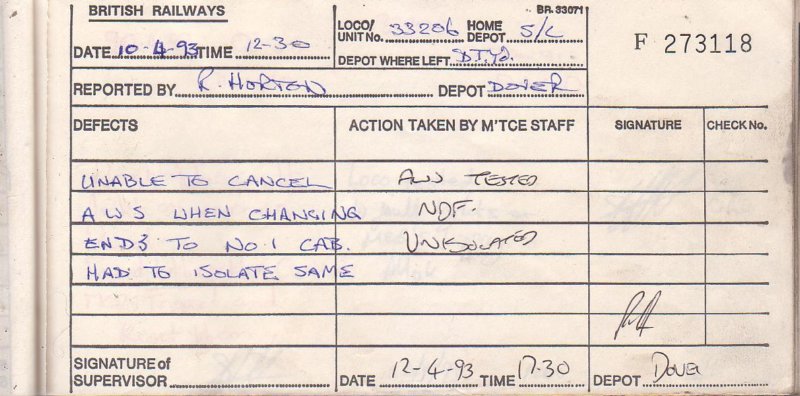 BRITISH RAILWAYS
BR. 33071
LOCO/ UNIT No. 33206 HOME DEPOT S/L
F 273118
DATE 10-4-93 TIME 12-30
DEPOT WHERE LEFT D.T.Yd.
REPORTED BY R. HORTON DEPOT DOVER
DEFECTS ACTION TAKEN BY M'TCE STAFF SIGNATURE CHECK No.
UNABLE TO CANCEL AWS TESTED
AWS WHEN CHANGING NDF.
ENDS TO NO.1 CAB. UNISOLATED
HAD TO ISOLATE SAME
SIGNATURE of SUPERVISOR DATE 12-4-93 TIME 17-30 DEPOT Dover